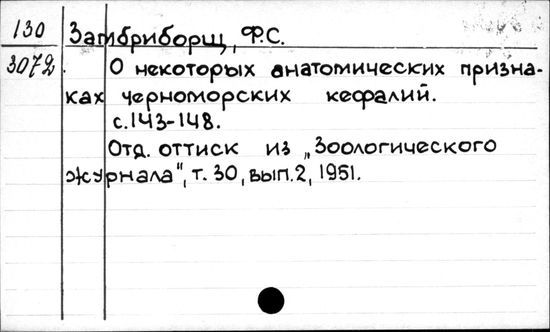 130 Замбриборщ, Ф.С.
3072. О некоторых анатомических призна-
ках черноморских кефалий.
с.143-148.
Отд. оттиск из „Зоологического
журнала", т. 30, вып. 2, 1951.